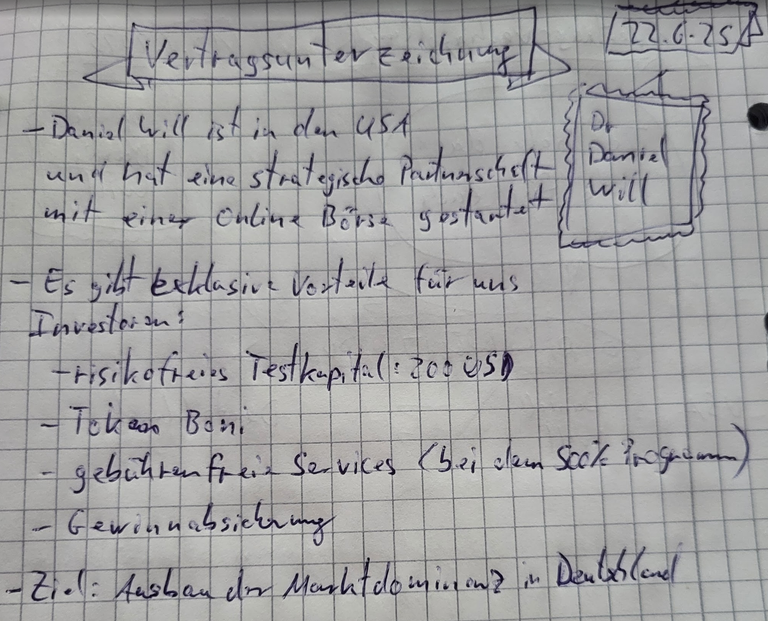 Vertragsunterzeichnung
22.6.25
- Daniel Will ist in den USA
und hat eine strategische Partnerschaft
mit einer Online Börse gestartet
Dr
Daniel
Will
- Es gibt exklusive Vorteile für uns
Investoren:
- risikofreies Testkapital: 200 USD
- Token Boni
- gebührenfreie Services (bei dem 500% Programm)
- Gewinnabsicherung
- Ziel: Ausbau der Marktdominanz in Deutschland